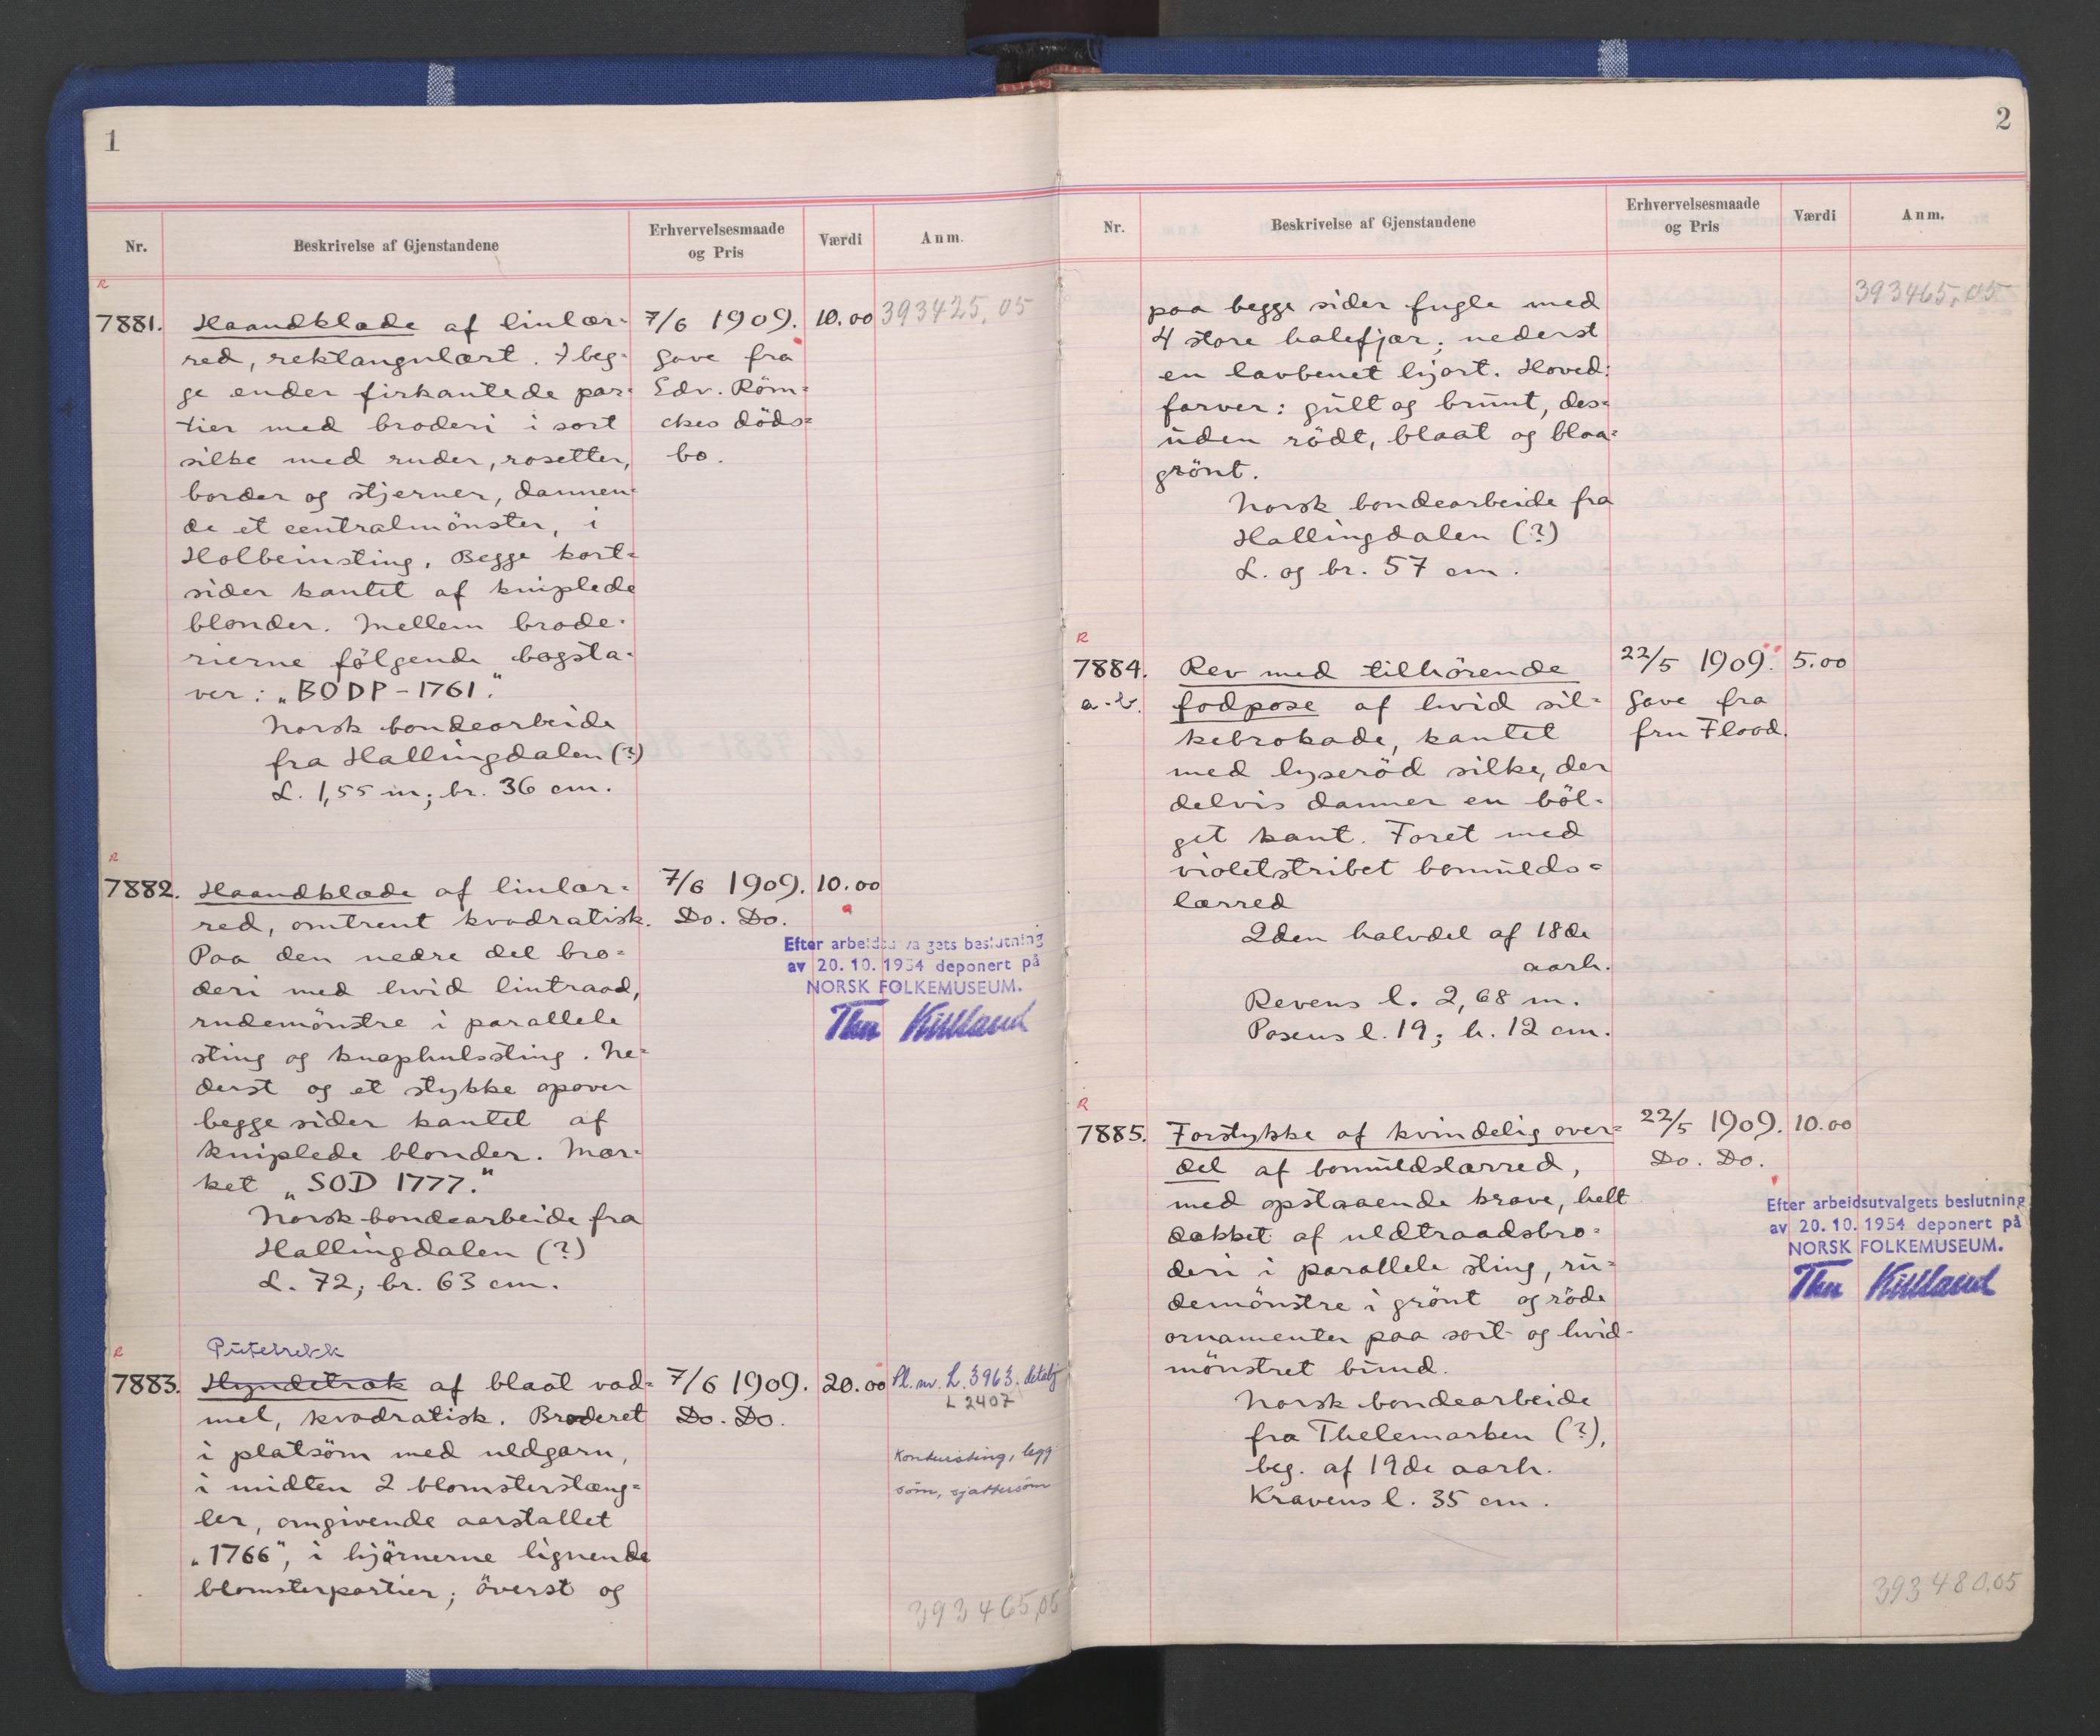 1
Nr.
Beskrivelse af Gjenstandene
Erhvervelsesmaade
og Pris
Værdi
Anm.
R
7881.
Haandklæde af linlær-
red, rektangulært. I beg-
ge ender firkantede par-
tier med broderi i sort
silke med ruder, rosetter,
border og stjerner, dannen-
de et centralmönster, i
Holbeinsting. Begge kort-
sider kantet af kniplede
blonder. Mellem brode-
rierne fölgende bogsta-
ver: „BODP - 1761."
Norsk bondearbeide
fra Hallingdalen (?)
L. 1,55 m; br. 36 cm.
7/6 1909.
Gave fra
Edv. Röm-
ckes döds-
bo.
10.00
393425,05
R
7882.
Haandklæde af linlær-
red, omtrent kvadratisk.
Paa den nedre del bro-
deri med hvid lintraad,
rudemönstre i parallele
sting og knaphulssting. Ne-
derst og et stykke opover
begge sider kantet af
kniplede blonder. Mær-
ket „SOD 1777."
Norsk bondearbeide fra
Hallingdalen (?)
L. 72; br. 63 cm.
7/6 1909.
Do. Do.
10.00
Efter arbeidsutvalgets beslutning
av 20. 10. 1954 deponert på
NORSK FOLKEMUSEUM.
Thor Kielland
R
7883.
Putetrekk
Hyndetræk af blaat vad-
mel, kvadratisk. Broderet
i platsöm med uldgarn,
i midten 2 blomsterstæng-
ler, omgivende aarstallet
„1766", i hjörnerne lignende
blomsterpartier; överst og
7/6 1909.
Do. Do.
20.00
Pl. nr. L. 3963. detalj
L 2407
Kontursting, legg
söm, sjattersöm
393465,05
2
Nr.
Beskrivelse af Gjenstandene
Erhvervelsesmaade
og Pris
Værdi
Anm.
393465,05
paa begge sider fugle med
4 store halefjær; nederst
en lavbenet hjort. Hoved-
farver: gult og brunt, des-
uden rödt, blaat og blaa-
grönt.
Norsk bondearbeide fra
Hallingdalen (?)
L. og br. 57 cm.
R
7884.
a-b.
Rev med tilhörende
fodpose af hvid sil-
kebrokade, kantet
med lyseröd silke, der
delvis danner en böl-
get kant. Foret med
violetstribet bomulds-
lærred
2den halvdel af 18de
aarh.
Revens l. 2,68 m.
Posens l. 19; h. 12 cm.
22/5 1909.
Gave fra
fru Flood.
5.00
R
7885.
Forstykke af kvindelig over-
del af bomuldslærred,
med opstaaende krave, helt
dækket af uldtraadsbro-
deri i parallele sting, ru-
demönstre i grönt og röde
ornamenter paa sort- og hvid-
mönstret bund.
Norsk bondearbeide
fra Thelemarken (?),
beg. af 19de aarh.
Kravens l. 35 cm.
22/5 1909.
Do. Do.
10.00
Efter arbeidsutvalgets beslutning
av 20. 10. 1954 deponert på
NORSK FOLKEMUSEUM.
Thor Kielland
393480,05